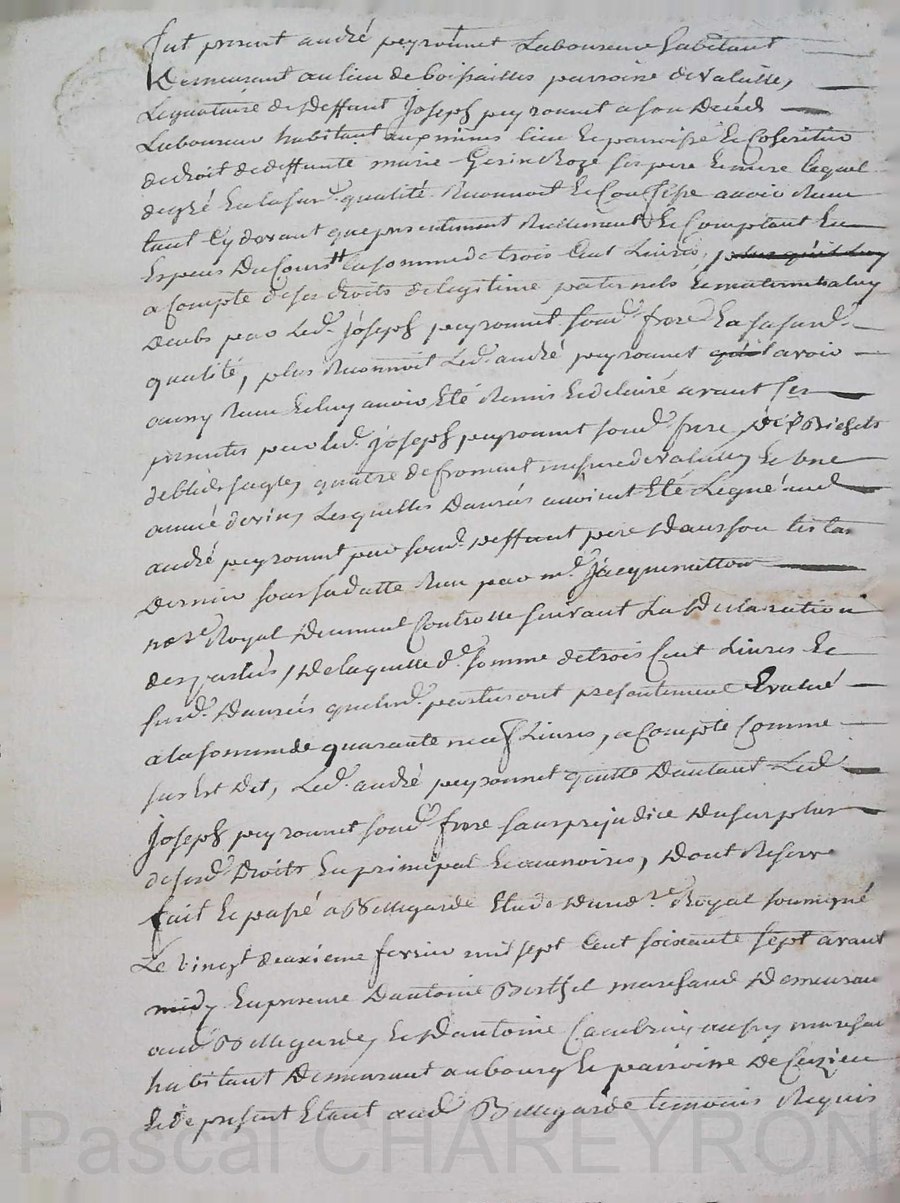 fut present andré peyronnet Laboureur habitant
Demeurant au lieu de boissailles parroisse de valeille,
Legataire de deffunt Joseph peyronnet a son Decéd
Laboureur habitant au lieu & parroisse &
de droit de deffunte marie Gerin Roze ses pere & mere lequel
de gré en la susd.e qualité Reconnoit & Confesse avoir Receu
tant Cy devant que presentement Reellement & Comptant En
Especes Du Cours la somme de trois Cent Livres,
a Compte de ses droits de legitime paternels & maternels a luy
deubs par led. Joseph peyronnet sond. frere En sa susd.
qualité, plus Reconnoit Led. andré peyronnet avoir
aussy Receu & luy avoir Eté Remis & delivré avant ses
presentes par led. Joseph peyronnet sond. frere Bichets
de bled seigle, quatre de froment mesure de & une
année de vin, Lesquelles Danrées avoient Eté Legué aud.
andré peyronnet par sond. deffunt pere Dans son testam.
Dernier sous sa datte Receu par m.e Jacquemetton
no.re Royal Deument Controllé suivant La Declaration
des parties, De laquelle d.e somme de trois Cent Livres &
susd. Danrées que lesd. parties ont presentement Evalué
a la somme de quarante neuf Livres, a Compte Comme
sus Est Dit, Led. andré peyronnet quitte Dautant Led.
Joseph peyronnet sond. frere sans prejudice Du surplus
de sesd. Droits En principal & accessoires, Dont Reserve
fait & passé a Bellegarde Etude Du no.re Royal soussigné
Le vingt deuxieme fevrier mil sept Cent soixante sept avant
midy En presence Dantoine Berthet marchand Demeurant
aud. Bellegarde, & Dantoine aussy marchand
habitant Demeurant au bourg & parroisse De Cuzieu
& De present Etant aud. Bellegarde temoins Requis
Pascal CHAREYRON